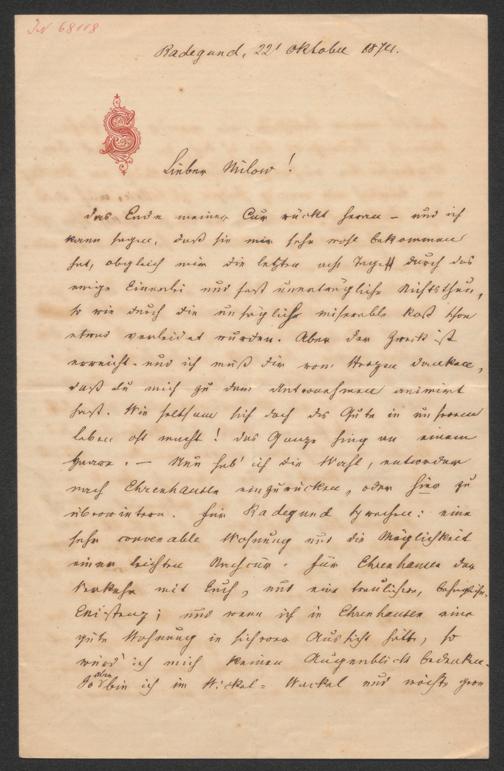 IN 68118
Radegund, 22t Oktober 1874.
S
Lieber Milow!
das Ende meiner Cur rückt heran – und ich
kann sagen, daß sie mir sehr wohl bekommen
hat, obgleich mir die letzten acht Tage durch das
ewige Einerlei und fast unerträgliche Nichtsthun,
so wie durch die unsäglich miserable Kost schon
etwas verleidet wurden. Aber der Zweck ist
erreicht und ich muß dir von Herzen danken,
daß du mich zu dem Unternehmen animirt
hast. Wie seltsam sich doch das Gute in unserem
Leben oft macht! das Ganze hing an einem
Haare. – Nun hab' ich die Wahl, entweder
nach Ehrenhausen einzurücken, oder hier zu
überwintern. Für Radegund sprechen: eine
sehr convenable Wohnung und die Möglichkeit
einer leichten Nachcur. Für Ehrenhausen der
Verkehr mit Euch, und eine trauliche, behagliche
Existenz; und wenn ich in Ehrenhausen eine
gute Wohnung in sicherer Aussicht hätte, so
würd' ich mich keinen Augenblick bedenken.
So aber bin ich im Wickel-Wackel und möchte gern